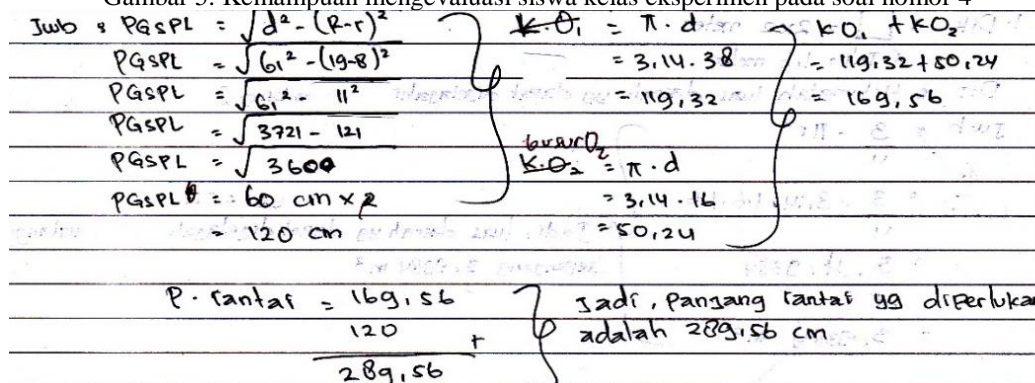 Gambar 3. Kemampuan mengevaluasi siswa kelas eksperimen pada soal nomor 4
Jwb : PGSPL = √d² - (R-r)²
PGSPL = √61² - (19-8)²
PGSPL = √61² - 11²
PGSPL = √3721 - 121
PGSPL = √3600
PGSPL = 60 cm x 2
= 120 cm
K.O₁ = π . d
= 3,14 . 38
= 119,32
busur O₂
K.O₂ = π . d
= 3,14 . 16
= 50,24
kO₁ + kO₂
= 119,32 + 50,24
= 169,56
P. rantai = 169,56
120
+
289,56
Jadi, Panjang rantai yg diperluka
adalah 289,56 cm